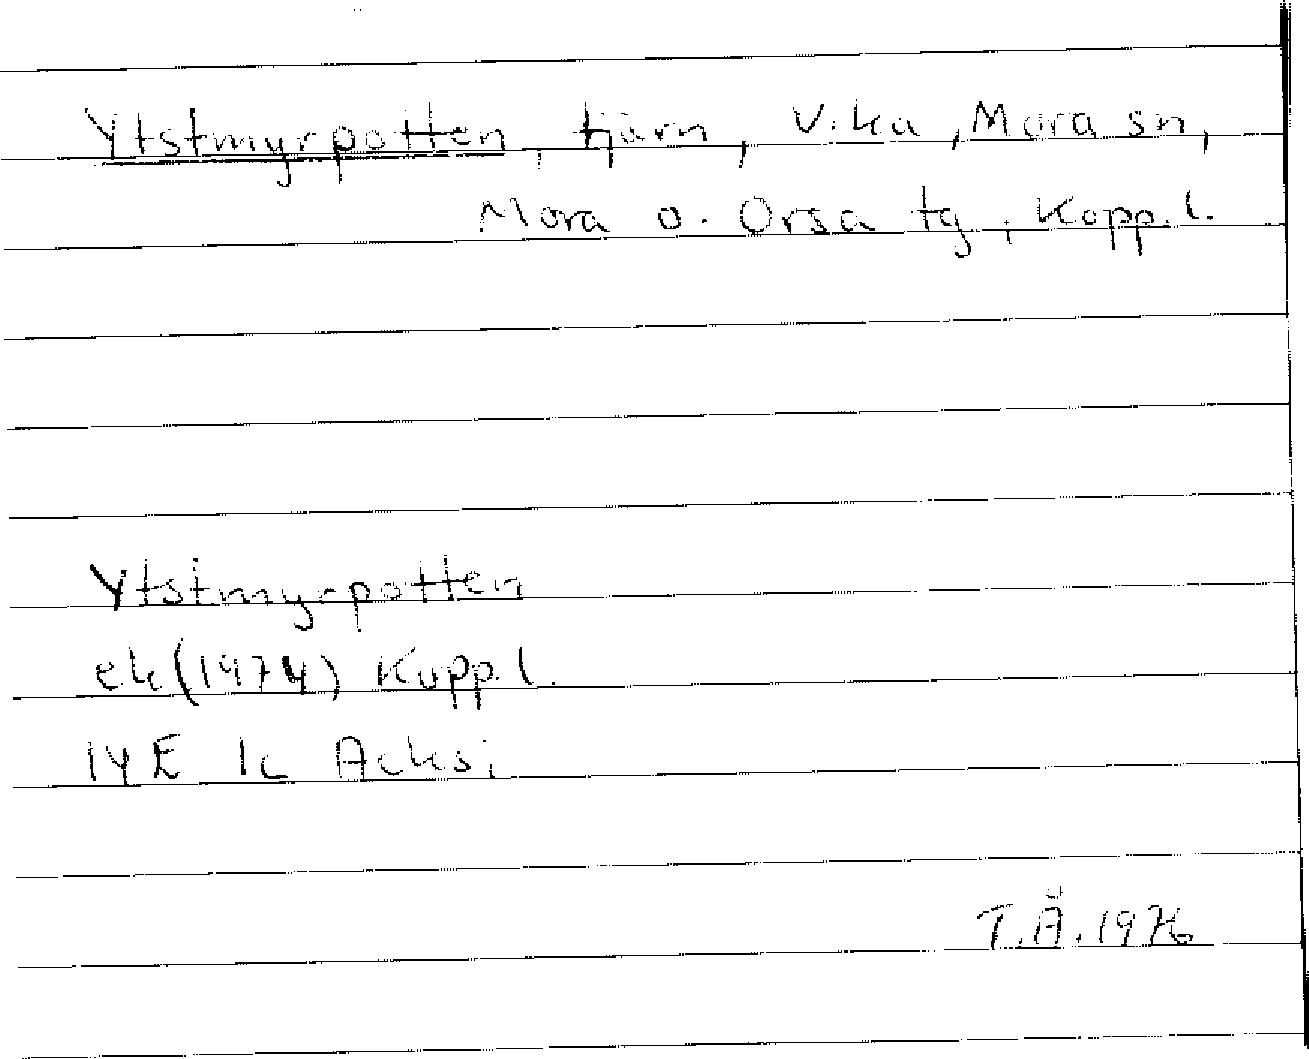 Ytstmyrpotten, tjärn, Vika, Mora sn,
Mora o. Orsa tg, Kopp. l.
Ytstmyrpotten
ek (1974) Kopp. l.
14E 1c Acksi
T.Å. 1976